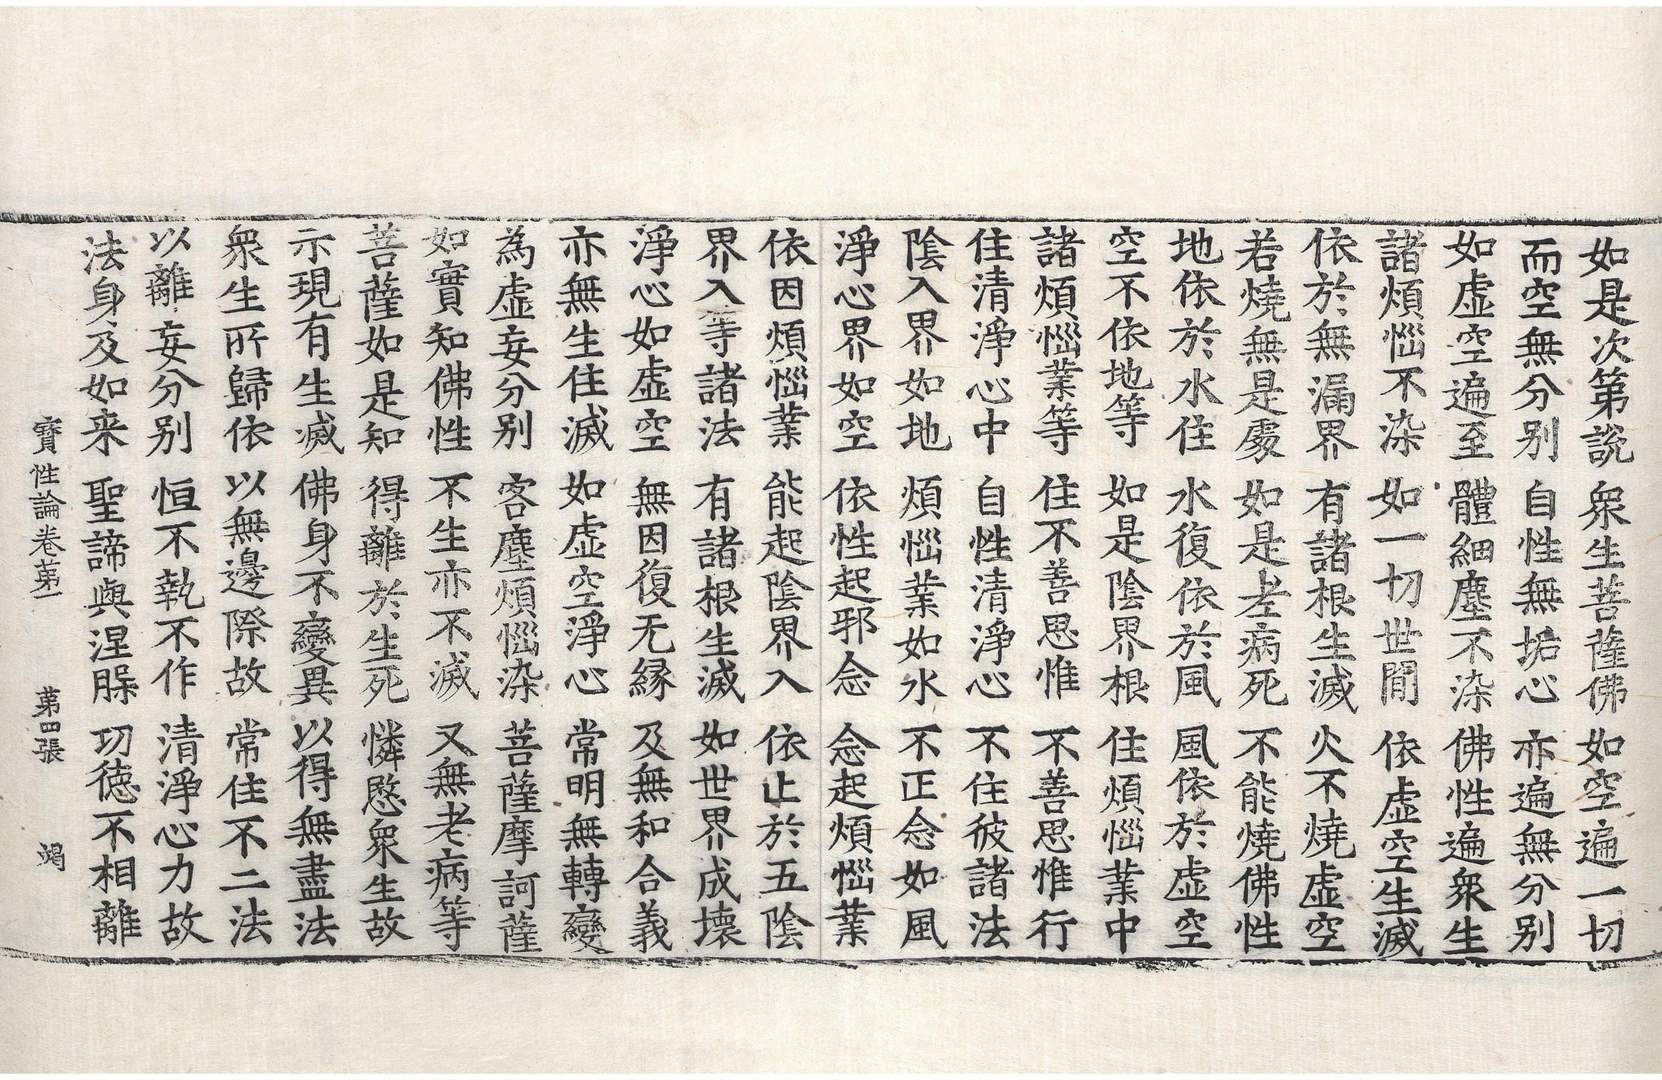 如是次第說 衆生菩薩佛 如空遍一切
而空無分别 自性無垢心 亦遍無分别
如虛空遍至 體細塵不染 佛性遍衆生
諸煩惱不染 如一切世閒 依虛空生滅
依於無漏界 有諸根生滅 火不燒虛空
若燒無是處 如是老病死 不能燒佛性
地依於水住 水復依於風 風依於虛空
空不依地等 如是陰界根 住煩惱業中
諸煩惱業等 住不善思惟 不善思惟行
住清淨心中 自性清淨心 不住彼諸法
陰入界如地 煩惱業如水 不正念如風
淨心界如空 依性起邪念 念起煩惱業
依因煩惱業 能起陰界入 依止於五陰
界入等諸法 有諸根生滅 如世界成壞
淨心如虛空 無因復无縁 及無和合義
亦無生住滅 如虛空淨心 常明無轉變
為虛妄分别 客塵煩惱染 菩薩摩訶薩
如實知佛性 不生亦不滅 又無老病等
菩薩如是知 得離於生死 憐愍衆生故
示現有生滅 佛身不變異 以得無盡法
衆生所歸依 以無邊際故 常住不二法
以離妄分别 恒不執不作 清淨心力故
法身及如来 聖諦與涅槃 功德不相離
寳性論卷第一 第四張 竭